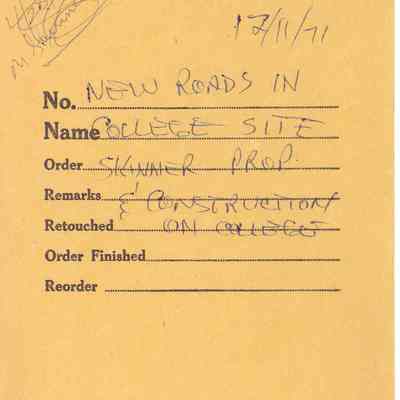 17/11/71
No. NEW ROADS IN
Name COLLEGE SITE
Order SKINNER PROP.
Remarks & CONSTRUCTION
Retouched ON COLLEGE
Order Finished
Reorder